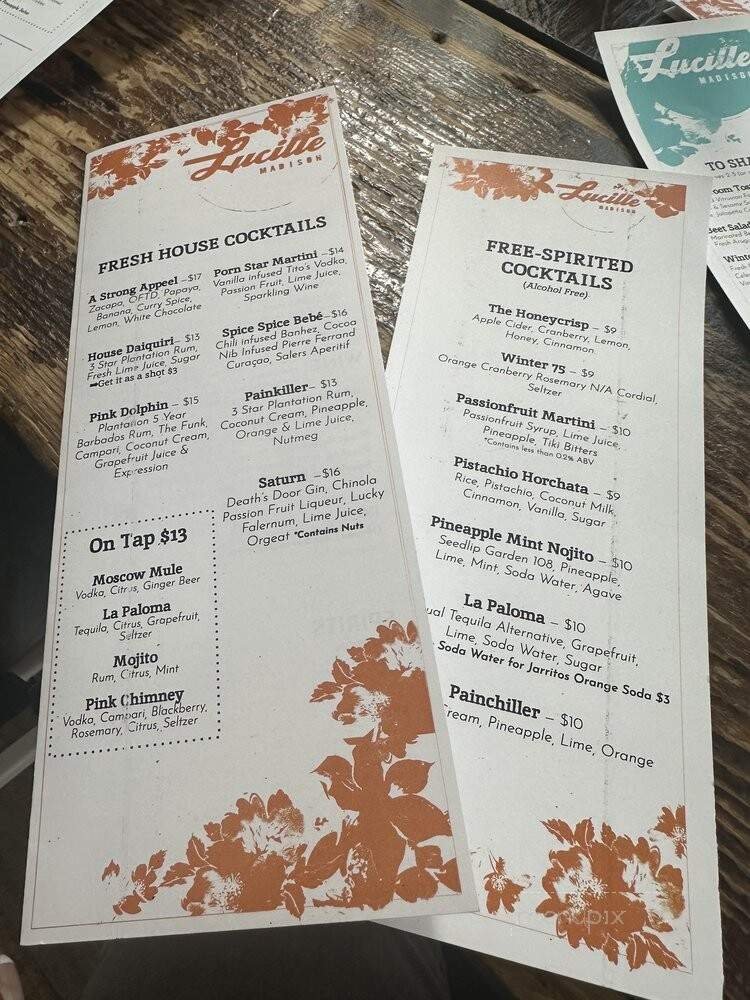 Lucille
MADISON
FRESH HOUSE COCKTAILS
A Strong Appeel –$17
Zacapa, OFTD, Papaya,
Banana, Curry Spice,
Lemon, White Chocolate
House Daiquiri– $13
3 Star Plantation Rum,
Fresh Lime Juice, Sugar
➡Get it as a shot $3
Pink Dolphin – $15
Plantation 5 Year
Barbados Rum, The Funk,
Campari, Coconut Cream,
Grapefruit Juice &
Expression
Porn Star Martini –$14
Vanilla infused Tito's Vodka,
Passion Fruit, Lime Juice,
Sparkling Wine
Spice Spice Bebé–$16
Chili infused Banhez, Cocoa
Nib Infused Pierre Ferrand
Curaçao, Salers Aperitif
Painkiller– $13
3 Star Plantation Rum,
Coconut Cream, Pineapple,
Orange & Lime Juice,
Nutmeg
Saturn –$16
Death's Door Gin, Chinola
Passion Fruit Liqueur, Lucky
Falernum, Lime Juice,
Orgeat *Contains Nuts
On Tap $13
Moscow Mule
Vodka, Citrus, Ginger Beer
La Paloma
Tequila, Citrus, Grapefruit,
Seltzer
Mojito
Rum, Citrus, Mint
Pink Chimney
Vodka, Campari, Blackberry,
Rosemary, Citrus, Seltzer
Lucille
MADISON
FREE-SPIRITED
COCKTAILS
(Alcohol Free)
The Honeycrisp – $9
Apple Cider, Cranberry, Lemon,
Honey, Cinnamon
Winter 75 – $9
Orange Cranberry Rosemary N/A Cordial,
Seltzer
Passionfruit Martini – $10
Passionfruit Syrup, Lime Juice,
Pineapple, Tiki Bitters
*Contains less than 0.2% ABV
Pistachio Horchata – $9
Rice, Pistachio, Coconut Milk,
Cinnamon, Vanilla, Sugar
Pineapple Mint Nojito – $10
Seedlip Garden 108, Pineapple,
Lime, Mint, Soda Water, Agave
La Paloma – $10
Tequila Alternative, Grapefruit,
Lime, Soda Water, Sugar
Soda Water for Jarritos Orange Soda $3
Painchiller – $10
Pineapple, Lime, Orange
Lucille
MADISON
TO